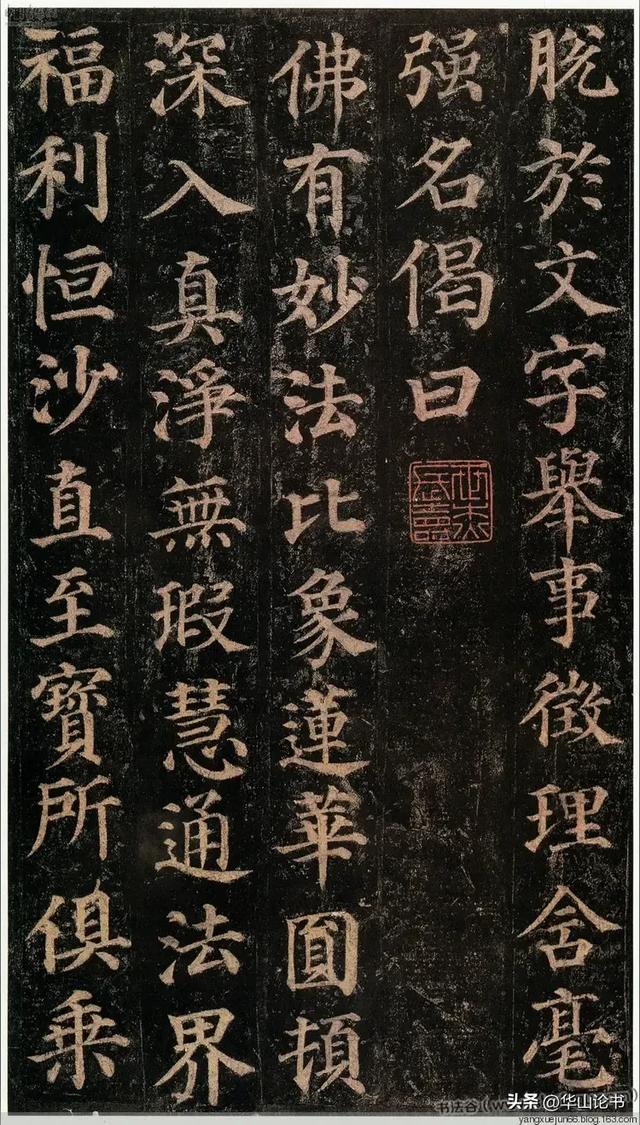 脫於文字舉事徵理含毫
强名偈曰
佛有妙法比象蓮華圓頓
深入真淨無瑕慧通法界
福利恒沙直至寶所俱乗
头条 @华山论书
yangxuejun66.blog.163.com